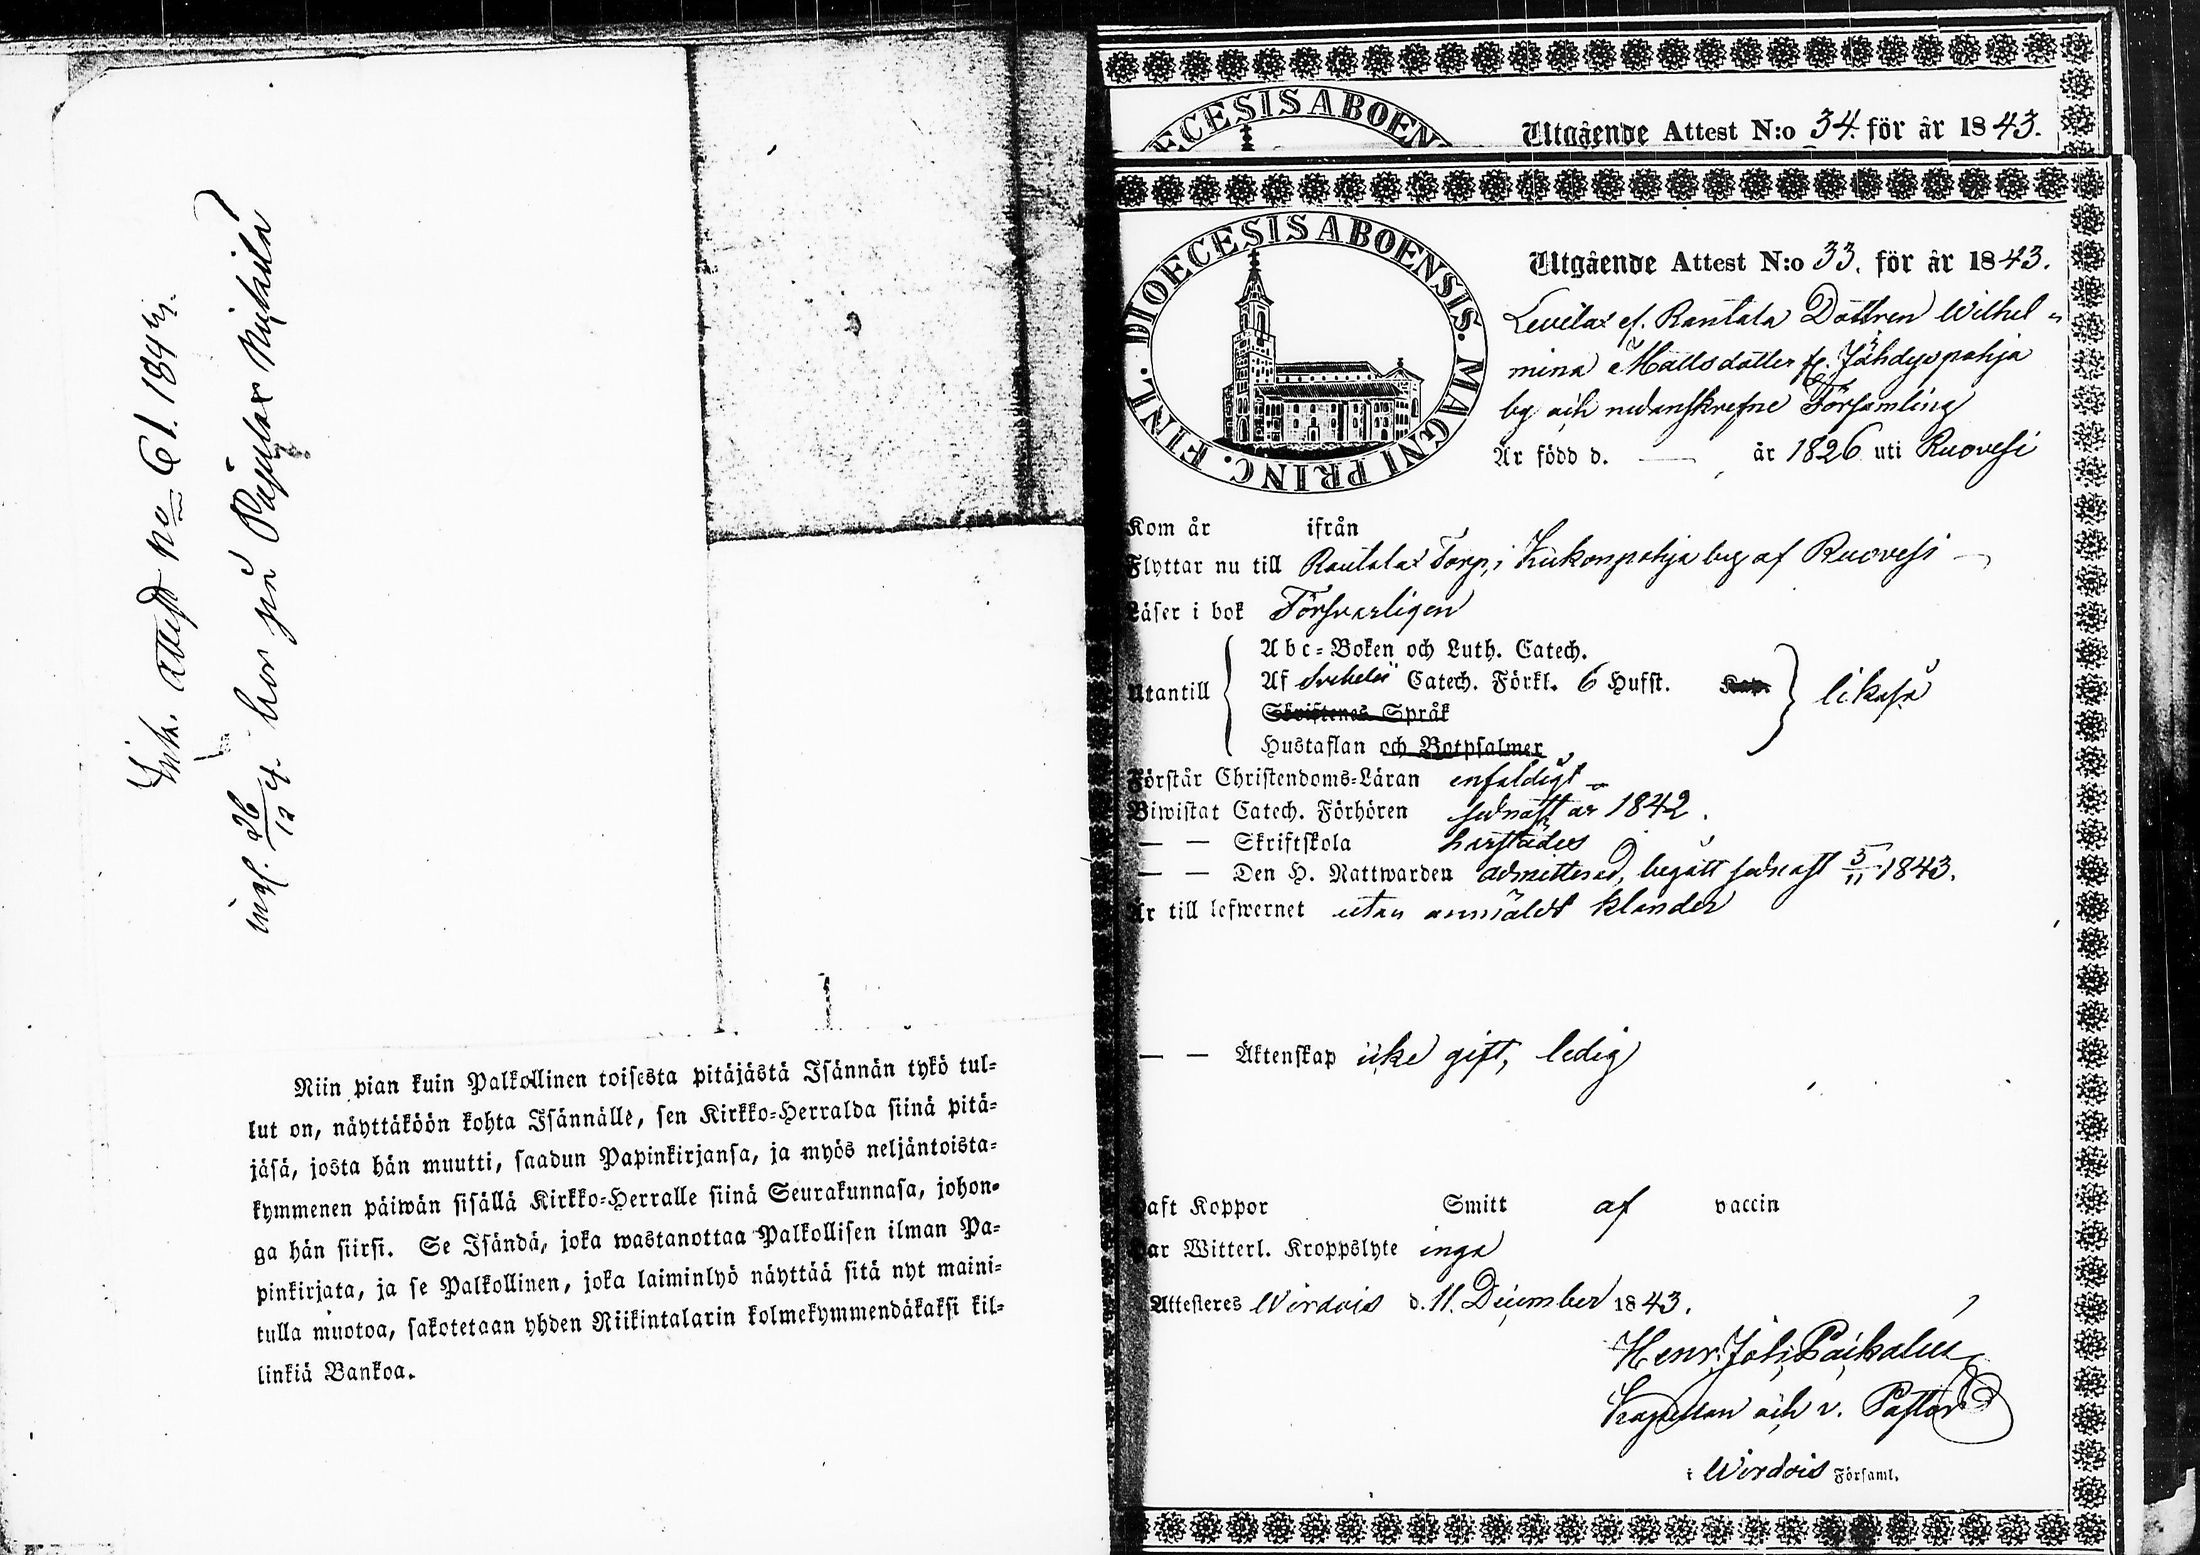 Ink. attest No 61. 1844.
insk. 26/12 4. bor på Pajulax Mickila
Niin pian kuin Palkollinen toisesta pitäjästä Isännän tykö tul=
lut on, näyttäköön kohta Isännälle, sen Kirkko=Herralda siinä pitä=
jäsä, josta hän muutti, saadun Papinkirjansa, ja myös neljäntoista=
kymmenen päiwän sisällä Kirkko=Herralle siinä Seurakunnasa, johon=
ga hän siirsi. Se Isändä, joka wastanottaa Palkollisen ilman Pa=
pinkirjata, ja se Palkollinen, joka laiminlyö näyttää sitä nyt maini=
tulla muotoa, sakotetaan yhden Riikintalarin kolmekymmendäkaksi kil=
linkiä Bankoa.
ECESIS ABOEN
Utgående Attest N:o 34. för år 1843.
DIOECESIS ABOENSIS. MAGNI PRINC. FINL.
Utgående Attest N:o 33. för år 1843.
Rantala Dottren Wilhel=
mina Mattsdotter fr. Jähdyspohja
by och nedanskrefne Församling
Är född d. — år 1826 uti Ruovesi
Kom år ifrån
Flyttar nu till Rautala Torp, i Kukonpohja by af Ruovesi —
Läser i bok Försvarligen
Utantill
Abc=Boken och Luth. Catech.
Af Svebelii Catech. Förkl. 6 Hufst. Kap.
Skriftenes Språk
Hustaflan och Botpsalmer
likaså
Förstår Christendoms=Läran enfaldigt
Biwistat Catech. Förhören sednast år 1842.
— — Skriftskola härstädes
— — Den H. Nattwarden admitterad, begått sednast 5/11 1843.
Är till lefwernet utan anmäldt klander
— — Äktenskap icke gift, ledig
Haft Koppor Smitt af vaccin
Har Witterl. Kroppslyte inga
Attesteres Wirdois d. 11. December 1843.
Henr. Joh.
Kapellan och v. Pastor
i Wirdois Församl.